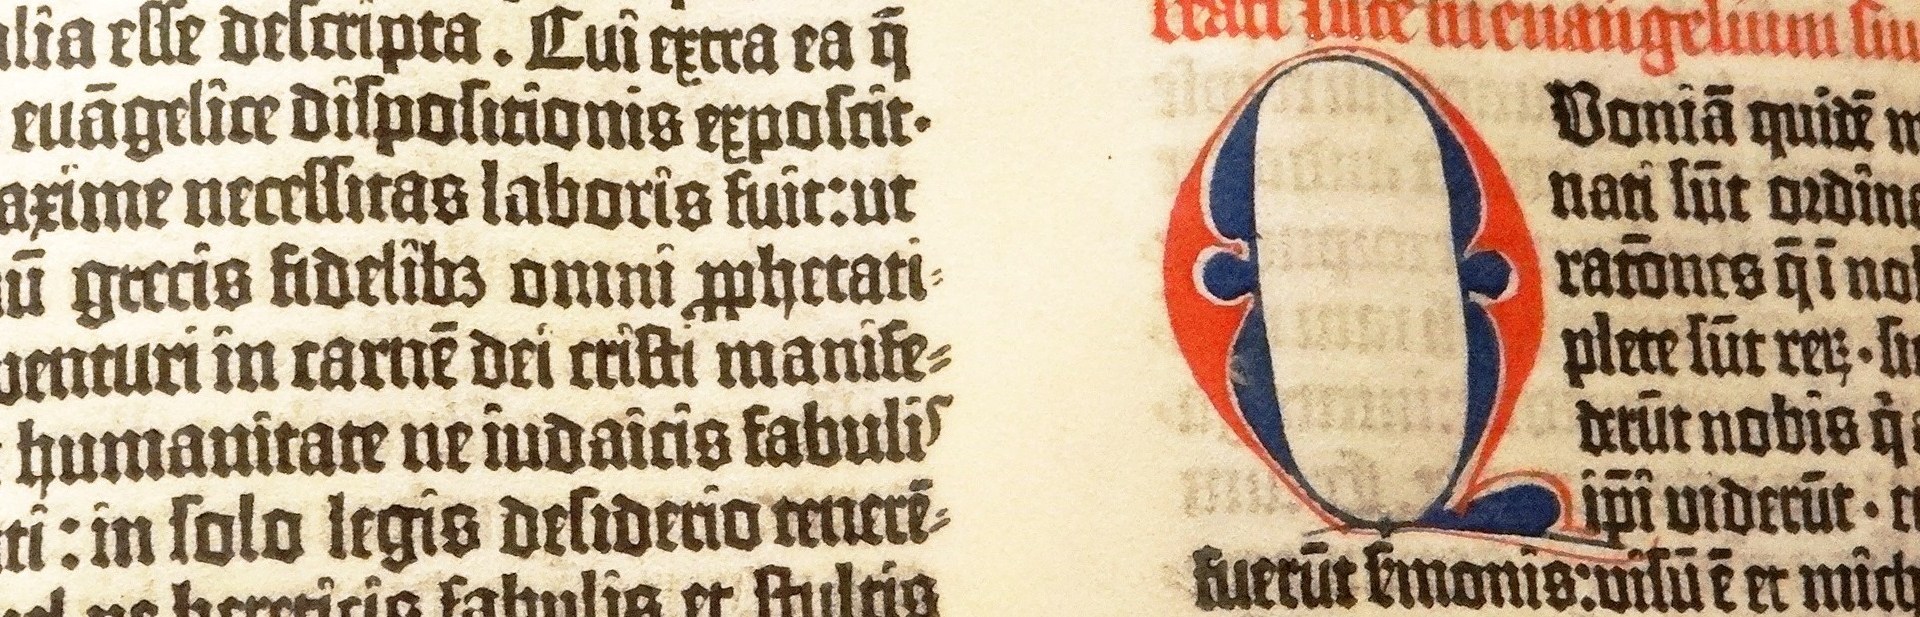 alia esse descripta. Cui extra ea q̄
euāgelice dispositionis exposcit.
axime necessitas laboris fuit: ut
grecis fidelibꝫ omni ꝓphetati-
venturi in carnē dei cristi manife-
humanitate ne iudaicis fabulis
ti: in solo legis desiderio tenerē-
ne hereticis fabulis et stultis
euangelium
QVoniā quidē m
nati sūt ordina
rationes q̄ ī nob
plete sūt reꝝ. si
derūt nobis
ip̄i viderūt.
fuerūt sermonis: visū ē et mich